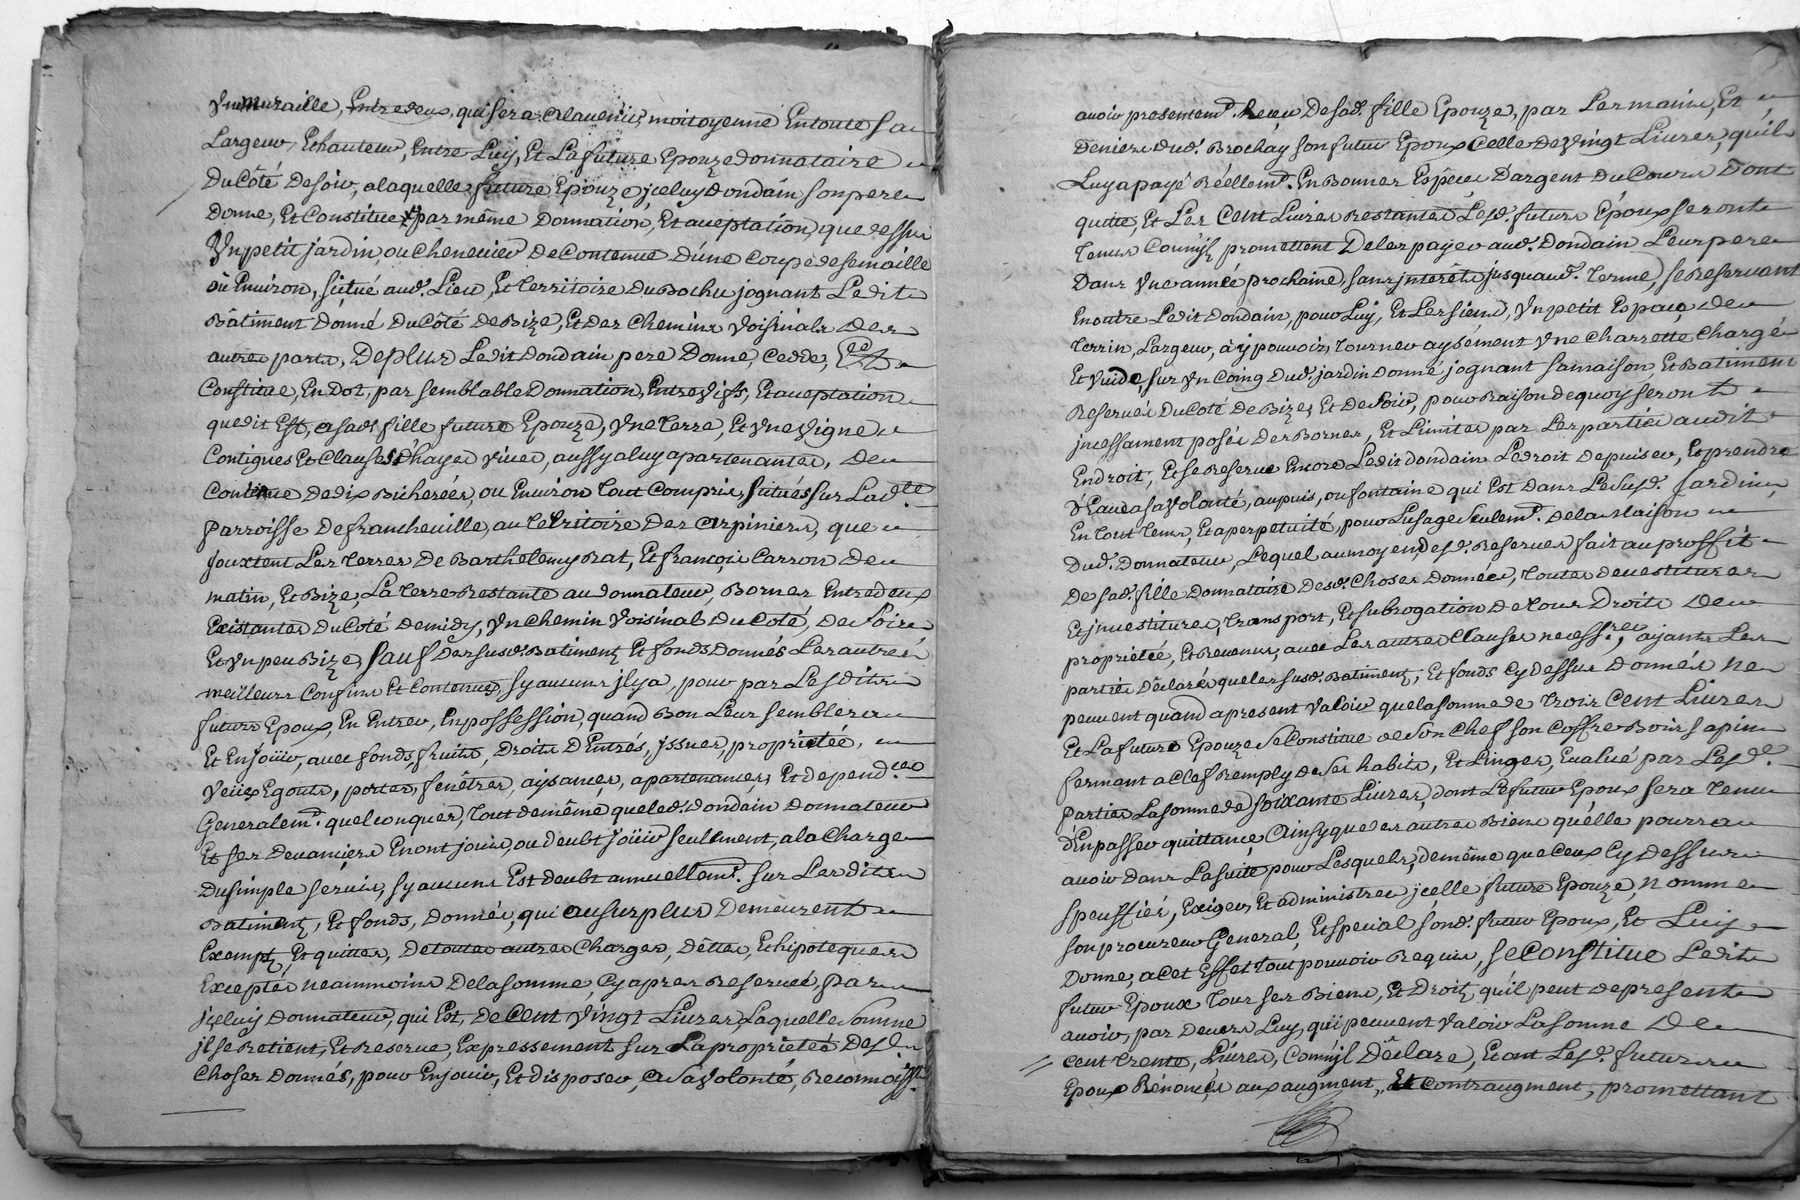 Vne muraille, Entredeux, qui sera alavenir, moitoyenné Entoute sa
Largeur, Ethauteur, Entre Luy, Et Lafuture Epouze donnataire
DuCôté Desoir, alaquelle future Epouze, jceluy dondain sonpere
Donne, Et Constitue par même Donnation, Et acceptation, quedessus
Vnpetit jardin, ou Chenevier DeContenue D'une Coupe desemaille
ou Environ, situé aud. Lieu, Et Territoire DuBochu jognant Ledit
Bâtiment Donné DuCôté DeBize, Et Des Chemins Voisinals Des
autres parts, Deplus Ledit Dondain pere Donne, Cedde, Et
Constitue, En Dot, par semblable Donnation, Entrevifs, Et acceptation
quedit Est, asad. fille future Epouze, Vne Terre, Et Vne Vigne
Contigues Et Clauses d'hayes Vives, aussy aluy apartenantes, De
Contenue Dedix Bicherées, ou Environ Tout Compris, situés sur Ladte
parroisse De francheville, au Territoire Des Arpiniers, que
Jouxtent Les Terres De Barthelemy Rat, Et françois Carron De
matin, Et Bize, La Terre Restante au donnateur, Bornes Entredeux
Existantes DuCoté Demidy, Vn Chemin Voisinal DuCoté, De Soir
Et Vn peu Bize, sauf Des susd. Batiments Et fonds Donnés Les autres
meilleurs Confins Et Contenues, sy aucuns jlya, pour par Lesdits
futurs Epoux, En Entrer, En possession, quand Bon Leur semblera
Et En Joüir, avec fonds, fruits, Droits D'Entrés, Jssues, proprietée,
Veües Egouts, portes, fenêtres, aysances, apartenances, Et depend.ces
Generalemt. quelconques, Tout demême queled. Dondain Donnateur
Et ses Devanciers En ont joui, ou deubt joüir seulement, ala Charge
Dusimple servis, sy aucuns Est deubt annuellemt. sur Lesdits
Batiments, Et fonds, Donnés, qui ausurplus Demeurent
Exempts, Et quittes, Detoutes autres Charges, Dêttes, Et hipoteques
Exceptés neammoins Delasomme, Cyapres Reservée, par
jceluy Donnateur, qui Est, De Cent Vingt Livres, Laquelle Somme
jl se Retient, Et Reserve, Expressement sur Laproprietée Desd.
Choses Données, pour Enjouir, Et disposer, aSavolonté, Reconnoiss.
avoir presentemt. Reçeu Desad. fille Epouze, par Les mains, Et
Deniers dud. Brochay son futur Epoux Celle De Vingt Livres, qu'il
Luy a payé Réellemt. En Bonnes Espêces D'argent Du Cours Dont
quitte, Et Les Cent Livres restantes Lesd. futurs Epoux seront
Tenus Comm'jls promettent De Les payer aud. Dondain Leur pere
Dans Vne année prochaine, sans jnterêts jusquaud. Terme, se Reservant
En outre Ledit Dondain, pour Luy, Et Les siens, Vn petit Espace de
Terrin, Largeur, à y pouvoir Tourner aysément Vne Charrette Chargé
Et Vuide, sur Vn Coing Dud. jardin Donné jognant samaison Et Batiment
Reservés DuCoté De Bize, Et De Soir, pour Raison dequoy seront
jncessament posés Des Bornes, Et Limites par Les parties audit
Endroit, Et se Reserve Encore Ledit dondain Ledroit Depuiser, Et prendre
d'Eau a savolonté, aupuis, ou fontaine qui Est dans Le Susd. Jardin,
En Tout Tems, Et aperpetuité, pour Lusage seulemt. De la Maison
Dud. Donnateur, Lequel aumoyen desd. Reserves fait au proffit
De sad. fille Donnataire Desd. Choses Données, Toutes Devestitures
Et jnvestitures, Transport, Et subrogation De Tous Droits De
proprietée, Et Revenus, avec Les autres Clauses necess.res, ajant Les
parties Déclarés que les susd. Batiments, Et fonds Cydessus Donnés ne
peuvent quand apresent Valoir que la somme de Trois Cent Livres
Et La future Epouze Se Constitue de Son Chef son Coffre Bois sapin
fermant a Clef Remply de Ses habits, Et Linges, Evalué par Lesd.
Parties La somme de Soixante Livres, dont Le futur Epoux sera Tenu
d'En passer quittance, Ainsy que des autres Biens qu'elle pourra
avoir Dans La suite pour Lesquels, demême que Ceux Cy Dessus
speciffiés, Exiger, Et administrer jcelle future Epouze, nomme
son procureur General, Et special sond. futur Epoux, Et Luy
Donne, a Cet Effet Tout pouvoir Requis, Se Constitue Ledit
futur Epoux Tous Ses Biens, Et Droits, qu'il peut de present
avoir, par Devers Luy, qui peuvent Valoir La somme De
cent Trente, Livres, Comm'jl Déclare, Et ont Lesd. futurs
Epoux Rénoncés aux augment, Et Contraugment, promettant